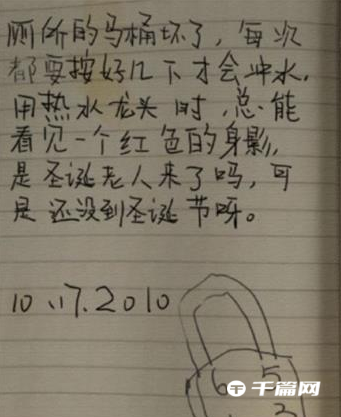 厕所的马桶坏了，每次
都要按好几下才会冲水.
用热水龙头时，总能
看见一个红色的身影，
是圣诞老人来了吗，可
是还没到圣诞节呀。
10.17.2010
6 5
3
千篇网